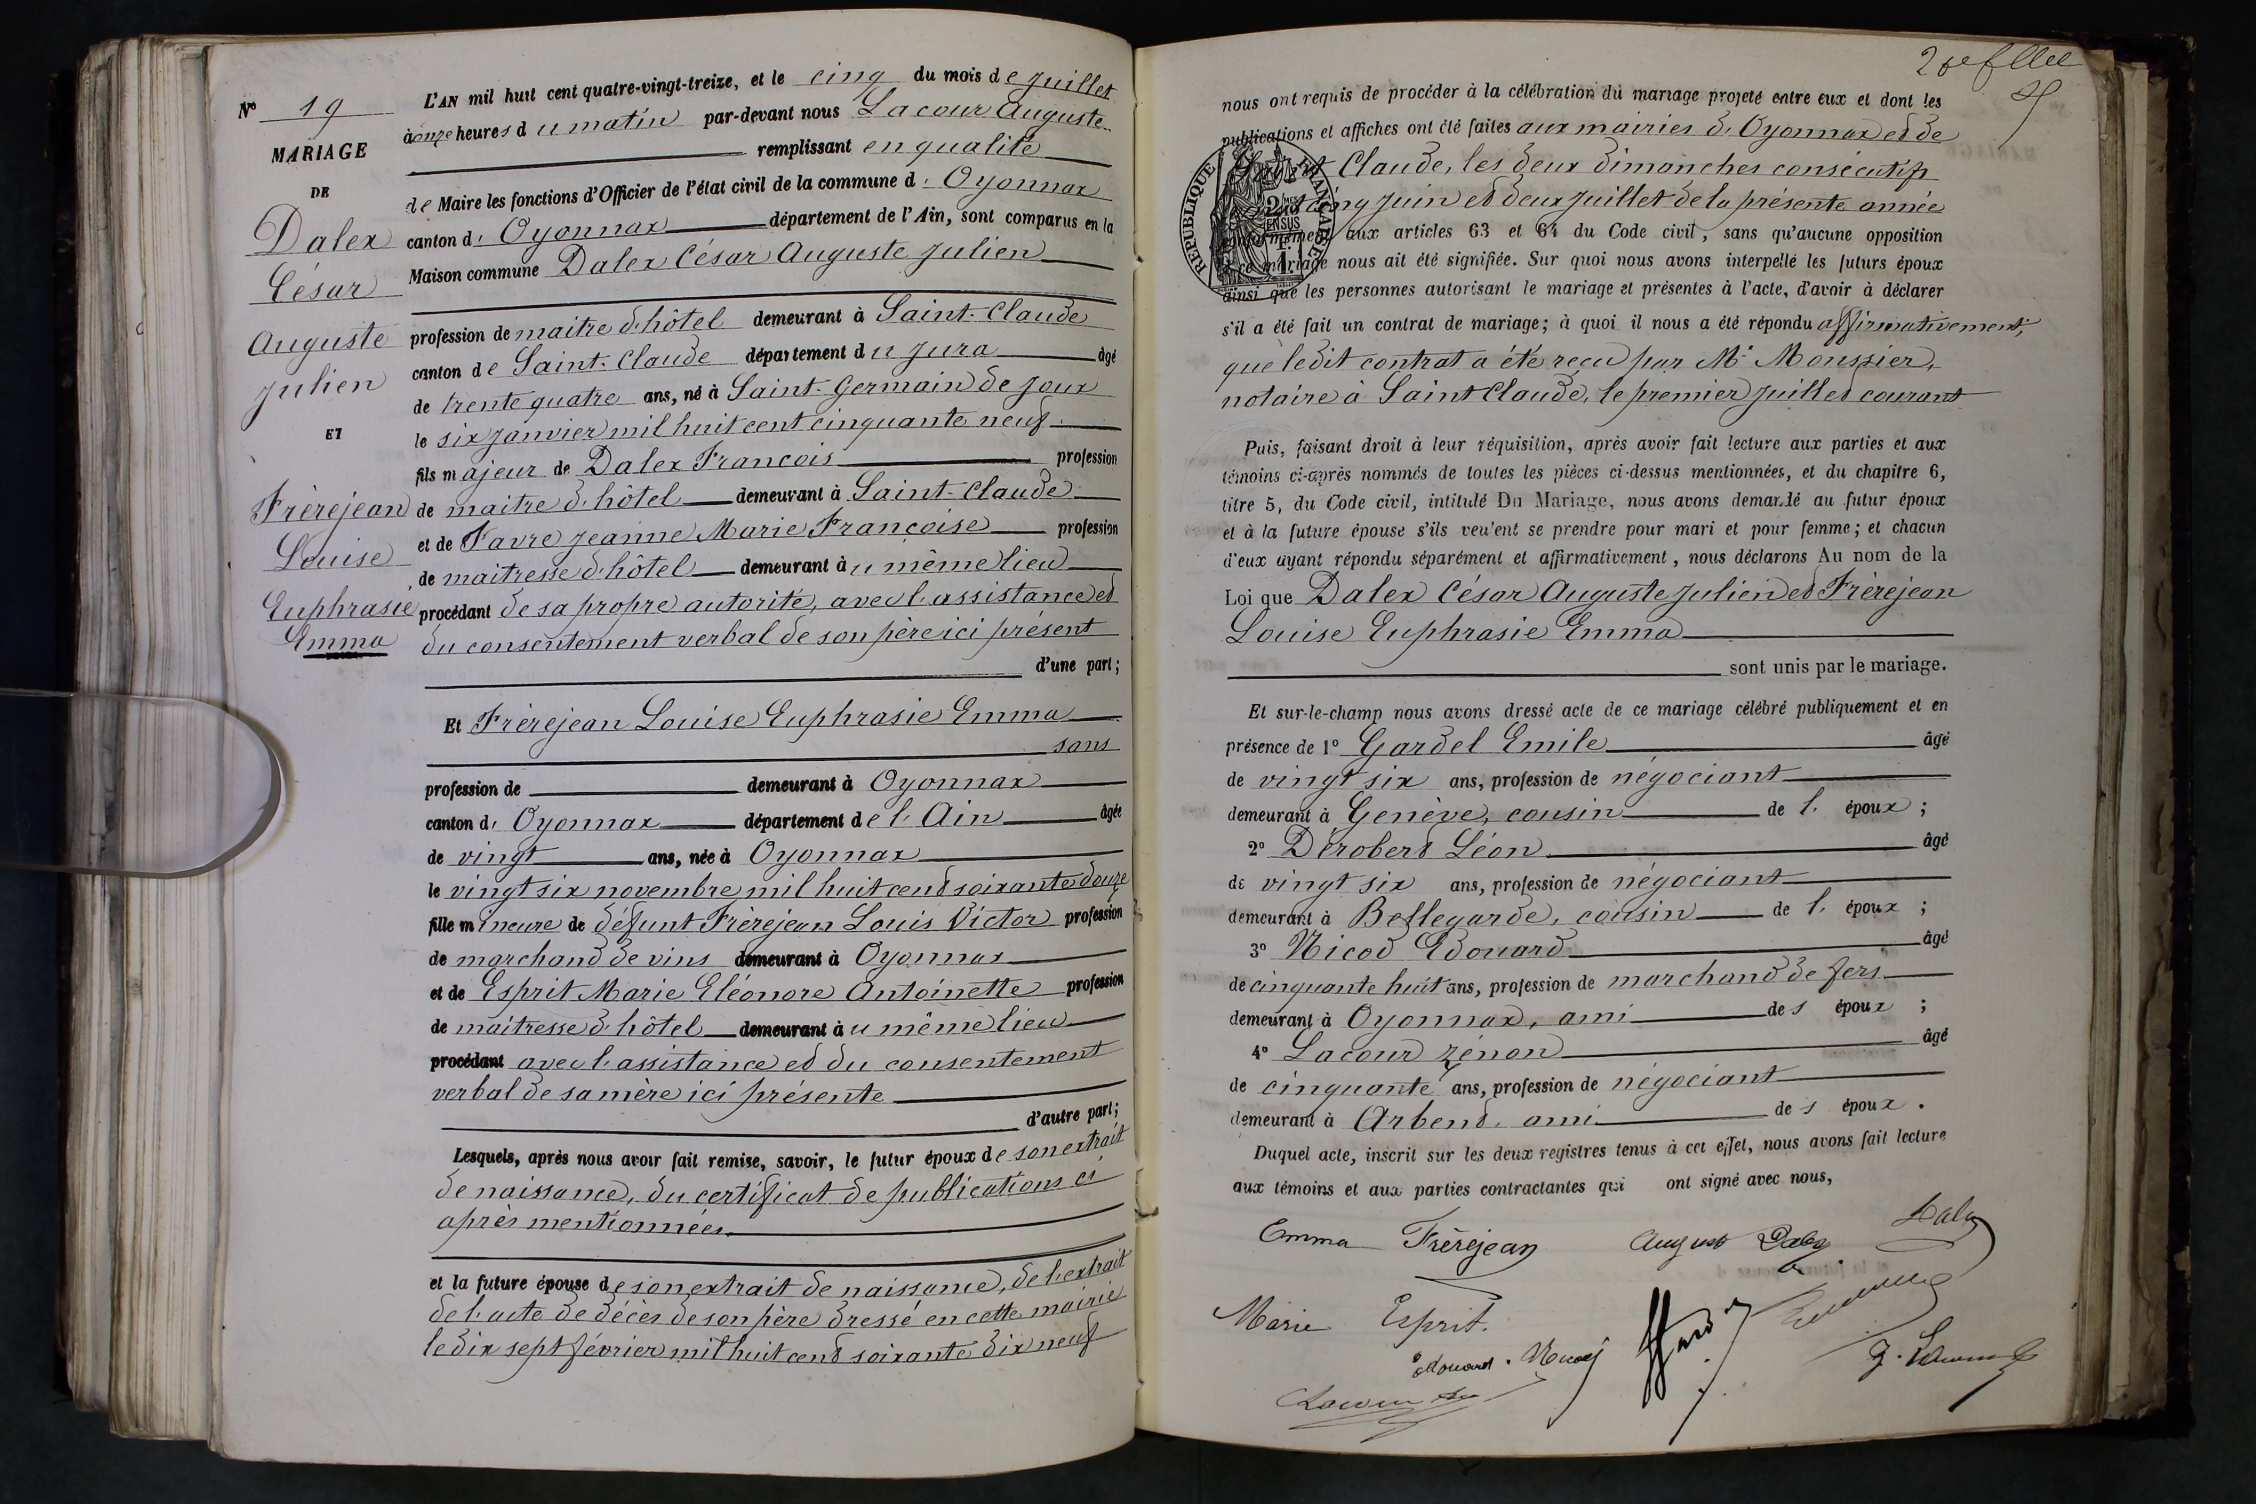 N° 19
MARIAGE
DE
Dalex
César
Auguste
Julien
ET
Frèrejean
Louise
Euphrasie
Emma
L'AN mil huit cent quatre-vingt-treize, et le cinq du mois de Juillet
à onze heures du matin par-devant nous Lacour Auguste
remplissant en qualité
de Maire les fonctions d'Officier de l'état civil de la commune d'Oyonnax
canton d'Oyonnax département de l'Ain, sont comparus en la
Maison commune Dalex César Auguste Julien
profession de maitre d'hôtel demeurant à Saint-Claude
canton de Saint-Claude département du Jura âgé
de trente quatre ans, né à Saint-Germain de Joux
le six janvier mil huit cent cinquante neuf
fils majeur de Dalex François profession
de maitre d'hôtel demeurant à Saint-Claude
et de Favre Jeanne Marie Françoise profession
de maitresse d'hôtel demeurant au même lieu
procédant de sa propre autorité, avec l'assistance et
du consentement verbal de son père ici présent
d'une part;
Et Frèrejean Louise Euphrasie Emma
sans
profession de demeurant à Oyonnax
canton d'Oyonnax département de l'Ain âgée
de vingt ans, née à Oyonnax
le vingt six novembre mil huit cent soixante douze
fille mineure de défunt Frèrejean Louis Victor profession
de marchand de vins demeurant à Oyonnax
et de Esprit Marie Eléonore Antoinette profession
de maitresse d'hôtel demeurant au même lieu
procédant avec l'assistance et du consentement
verbal de sa mère ici présente
d'autre part;
Lesquels, après nous avoir fait remise, savoir, le futur époux de son extrait
de naissance, du certificat de publications ci
après mentionnées
et la future épouse de son extrait de naissance, de l'extrait
de l'acte de décès de son père dressé en cette mairie
le dix sept février mil huit cent soixante dix neuf
nous ont requis de procéder à la célébration du mariage projeté entre eux et dont les
publications et affiches ont été faites aux mairies d'Oyonnax et de
Saint Claude, les deux dimanches consécutifs
vingt cinq juin et deux juillet de la présente année
conformément aux articles 63 et 64 du Code civil, sans qu'aucune opposition
à ce mariage nous ait été signifiée. Sur quoi nous avons interpellé les futurs époux
ainsi que les personnes autorisant le mariage et présentes à l'acte, d'avoir à déclarer
s'il a été fait un contrat de mariage; à quoi il nous a été répondu affirmativement,
que ledit contrat a été reçu par Me Moussier,
notaire à Saint Claude, le premier juillet courant
RÉPUBLIQUE FRANÇAISE
Puis, faisant droit à leur réquisition, après avoir fait lecture aux parties et aux
témoins ci-après nommés de toutes les pièces ci-dessus mentionnées, et du chapitre 6,
titre 5, du Code civil, intitulé Du Mariage, nous avons demandé au futur époux
et à la future épouse s'ils veulent se prendre pour mari et pour femme; et chacun
d'eux ayant répondu séparément et affirmativement, nous déclarons Au nom de la
Loi que Dalex César Auguste Julien et Frèrejean
Louise Euphrasie Emma
sont unis par le mariage.
Et sur-le-champ nous avons dressé acte de ce mariage célébré publiquement et en
présence de 1° Gardel Emile âgé
de vingt six ans, profession de négociant
demeurant à Genève, cousin de l'époux;
2° Dérobert Léon âgé
de vingt six ans, profession de négociant
demeurant à Bellegarde, cousin de l'époux;
3° Nicod Edouard âgé
de cinquante huit ans, profession de marchand de fers
demeurant à Oyonnax, ami des époux;
4° Lacour Zénon âgé
de cinquante ans, profession de négociant
demeurant à Arbent, ami des époux.
Duquel acte, inscrit sur les deux registres tenus à cet effet, nous avons fait lecture
aux témoins et aux parties contractantes qui ont signé avec nous,
Emma Frèrejean August Dalex Dalex
Marie Esprit.
Edouard Nicod